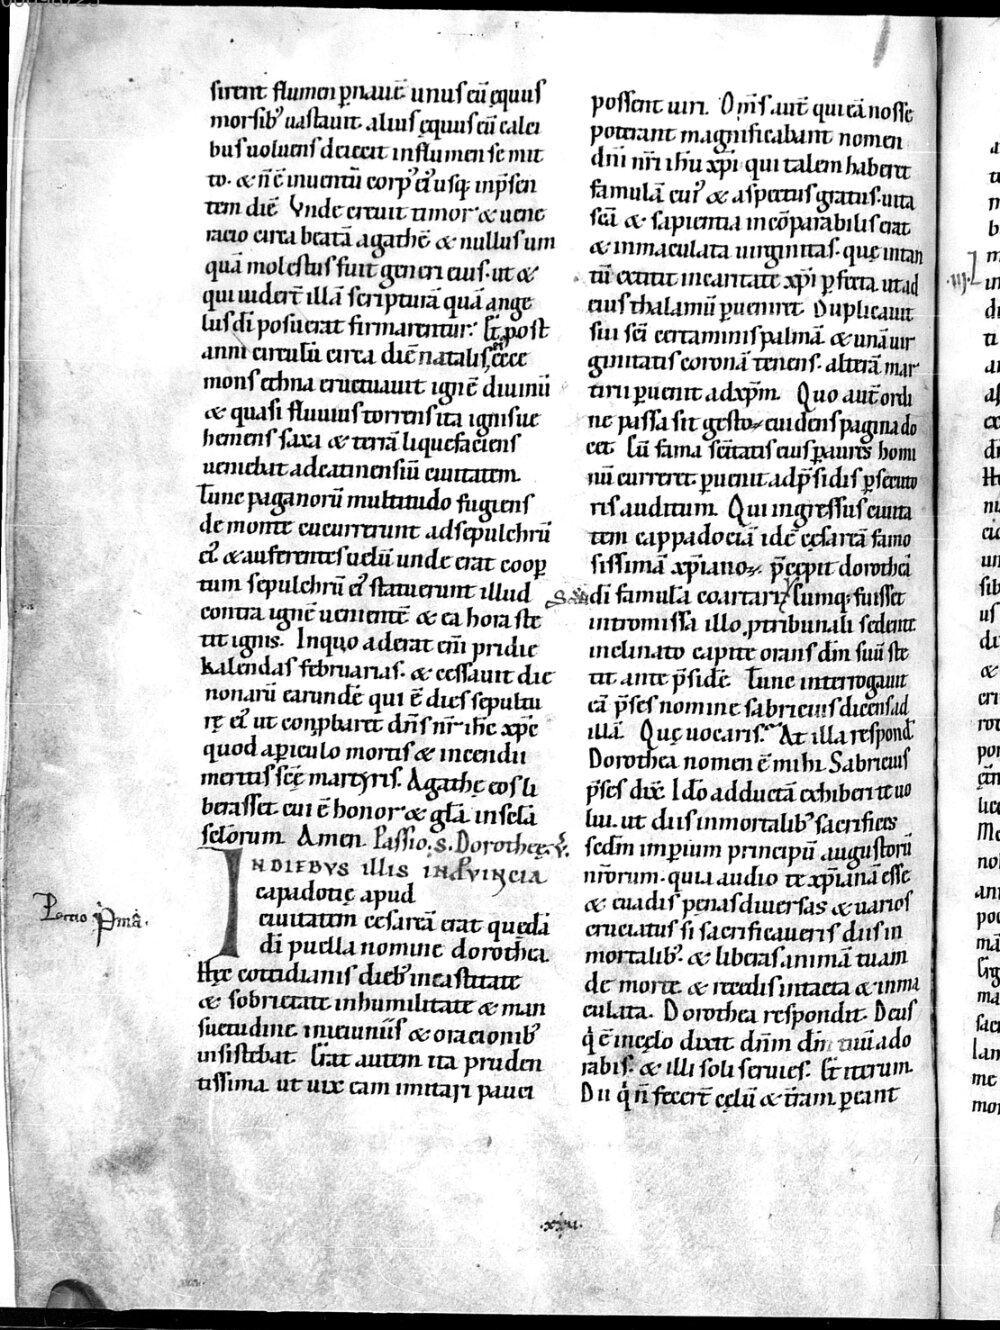 sirent flumen ꝑnauē unus eū equus
morsibꝰ uastauit. alius ęquus eū calci
bus uoluens deiecit in flumen se mit
to. & ñ ē inuentū corpꝰ eiꝰ usq; inp̄sen
tem diē Vnde creuit timor & uene
racio circa beatā agathē & nullus um
quā molestus fuit generi eius. ut &
qui uider̄t illā scripturā quā ange
lus dī posuerat firmarentur: Et post
anni circulū circa diē natalis ei ecce
mons ethna eructuauit ignē diuinū
& quasi fluuius torrens ita ignis ue
hemens saxa & terrā liquefaciens
ueniebat ad catinensiū ciuitatem.
Tunc paganorū multitudo fugiens
de monte cucurrerunt ad sepulchrū
eiꝰ & auferentes uelū unde erat cooꝑ
tum sepulchrū eiꝰ statuerunt illud
contra ignē uenientē & ea hora ste
tit ignis. Inquo aderat enī pridie
kalendas februarias. & cessauit die
nonarū earundē qui ē dies sepultu
rę eiꝰ ut conꝓbaret dn̄s nr̄ ihc xp̄c
quod a ꝑiculo mortis & incendii
meritis scē martyris. Agathe eos li
berasset cui ē honor & gl̄a in sc̄la
sc̄lorum Amen. Passio. s. Dorotheę. v̄.
INDIEBVS illis in ꝓuincia
capadotię apud
ciuitatem cesareā erat quedā
di puella nomine dorothea.
Hęc cottidianis diebꝰ in castitate
& sobrietate in humilitate & man
suetudine. in ieiuniis & oracionibꝰ
insistebat Erat autem ita pruden
tissima ut uix eam imitari pauci
Lectio p̄ma.
possent uiri. Om̄s aut̄ qui eā nosse
poterant magnificabant nomen
dn̄i nr̄i ihū xp̄i qui talem haberet
famulā eiꝰ & aspectus gratus. uita
sc̄a & sapientia incōparabilis erat
& inmaculata uirginitas. quę intan
tū extitit in caritate xp̄i ꝑfecta. ut ad
eius thalamū ꝑueniret. Duplicauit
sui sc̄i certaminis palmā & unā uir
ginitatis coronā tenens. alterā mar
tirii ꝑuenit ad xp̄m. Quo aut̄ ordi
ne passa sit gestoꝝ euidens pagina do
cet. Cū fama sc̄itatis eius ꝑ aures homi
nū curreret. ꝑuenit ad p̄sidis ꝑsecuto
ris auditum. Qui ingressus ciuita
tem cappadociā idē cęsareā famo
sissimā xp̄ianoꝝ. p̄cępit dorotheā
di famulā coartari. Cumq; fuisset
intromissa illo. ꝓ tribunali sedente
inclinato capite orans dn̄m suū ste
tit ante p̄sidē. Tunc interrogauit
eā p̄ses nomine sabricius dicens ad
illā. Quę uocaris? At illa respond̄
Dorothea nomen ē mihi. Sabricius
p̄ses dix̄. Ido adductā exhiberi te uo
lui. ut diis inmortalibꝰ sacrifices
secdm imꝑium principū augustorū
nr̄orum. quia audio te xp̄ianā esse
& euadis penas diuersas & uarios
cruciatus si sacrificaueris diis in
mortalibꝰ. & liberas animā tuam
de morte. & recedis intacta & inma
culata. Dorothea respondit. Deus
q̇ ē in cęlo dixit. dn̄m dm̄ tuū ado
rabis: & illi soli seruies: Et iterum
Dii q̇ ñ fecer̄t cęlū & terram ꝑeant